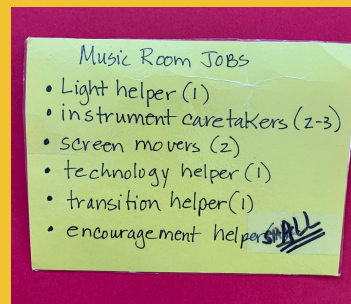 Music Room Jobs
• Light helper (1)
• instrument caretakers (2-3)
• screen movers (2)
• technology helper (1)
• transition helper (1)
• encouragement helpers ALL